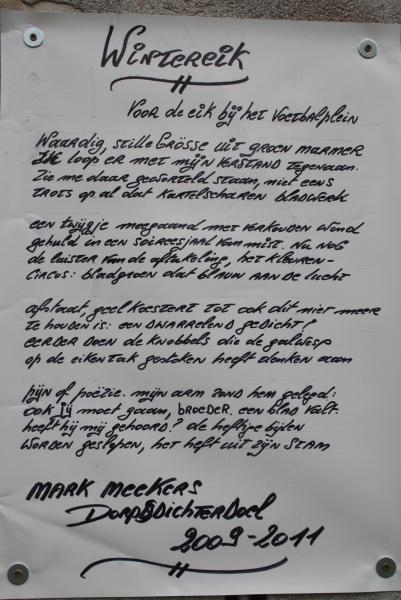 WINTEREIK
Voor de eik bij het Voetbalplein
Waardig, stille Grösse uit groen marmer
Ik loop er met mijn verstand tegenaan.
Zie me daar geworteld staan, niet eens
trots op al dat kartelscharen bladwerk
een twijgje meegaand met verkouden wind
gehuld in een soireesjaal van mist. Nu nog
de luister van de aftakeling, het kleuren-
circus: bladgroen dat blauw aan de lucht
afstaat, geel koestert tot ook dit niet meer
te houden is: een dwarrelend gedicht!
eerder doen de knobbels die de galwesp
op de eikentak gestoken heeft denken aan
pijn of poëzie. mijn arm rond hem gelegd:
ook jij moet gaan, broeder. een blad valt.
heeft hij mij gehoord? de heftige bijlen
worden geslepen, het heft uit zijn stam
MARK MEEKERS
DorpsDichter Doel
2009-2011